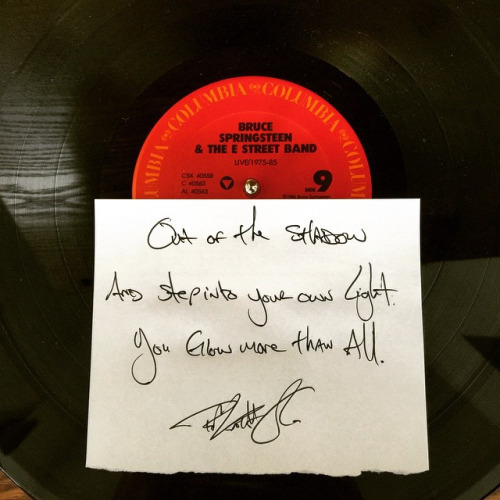 COLUMBIA COLUMBIA COLUMBIA
BRUCE
SPRINGSTEEN
& THE E STREET BAND
LIVE/1975-85
C5X 40558
C 40563
AL 40563
SIDE 9
Out of the SHADOW
And step into your own light.
You Glow more than All.